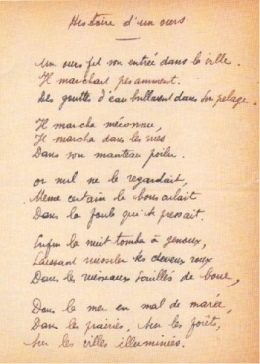 Histoire d'un ours
Un ours fit son entrée dans la ville.
Il marchait pesamment.
Des gouttes d'eau brillaient dans son pelage.
Il marcha méconnu,
Il marcha dans les rues
Dans son manteau poilu.
or nul ne le regardait,
Même certain le bousculait
Dans la foule qui se pressait.
Enfin la nuit tomba à genoux,
Laissant ruisseler ses cheveux roux
Dans les ruisseaux souillés de boue,
Dans la mer en mal de marée,
Dans les prairies, sur les forêts,
sur les villes illuminées.